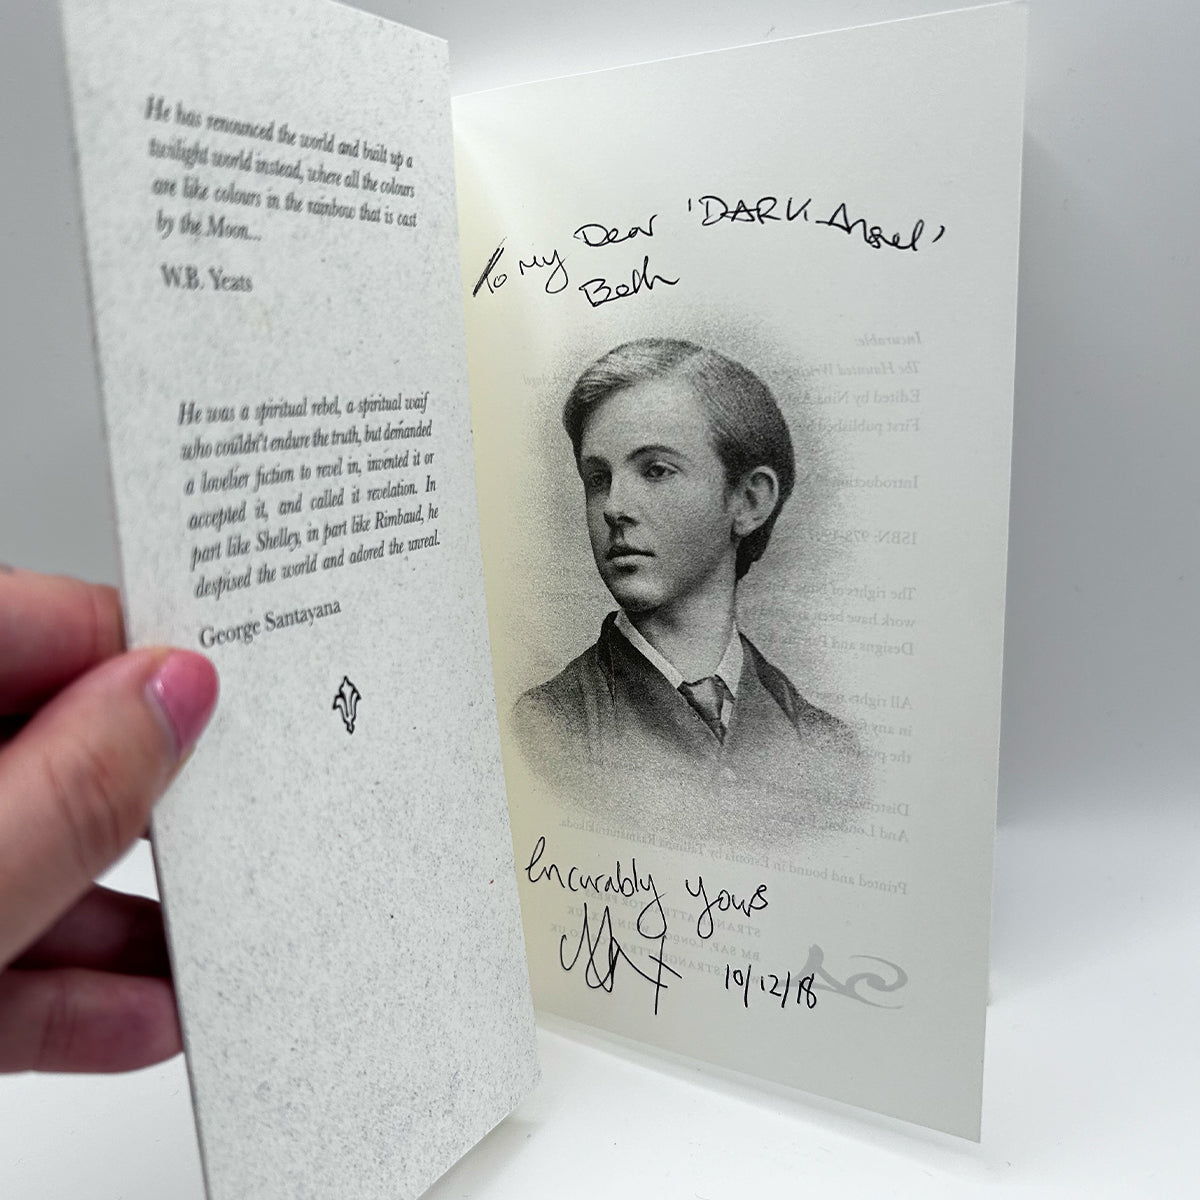 He has renounced the world and built up a
twilight world instead, where all the colours
are like colours in the rainbow that is cast
by the Moon...
W.B. Yeats
He was a spiritual rebel, a spiritual waif
who couldn't endure the truth, but demanded
a lovelier fiction to revel in, invented it or
accepted it, and called it revelation. In
part like Shelley, in part like Rimbaud, he
despised the world and adored the unreal.
George Santayana
To My Dear 'DARK Angel'
Beth
Incurable:
The Haunted
Edited by Nina
First published
Introduction
ISBN: 978-1
The rights of
work have been
Designs and
All rights
in any
the
Distributed by
And London,
Printed and bound in Estonia by Tallinna Raamatutrükikoda.
Incurably yours
STRANGE ATTRACTOR PRESS
BM SAP, London, WC1N 3XX, UK
10/12/18